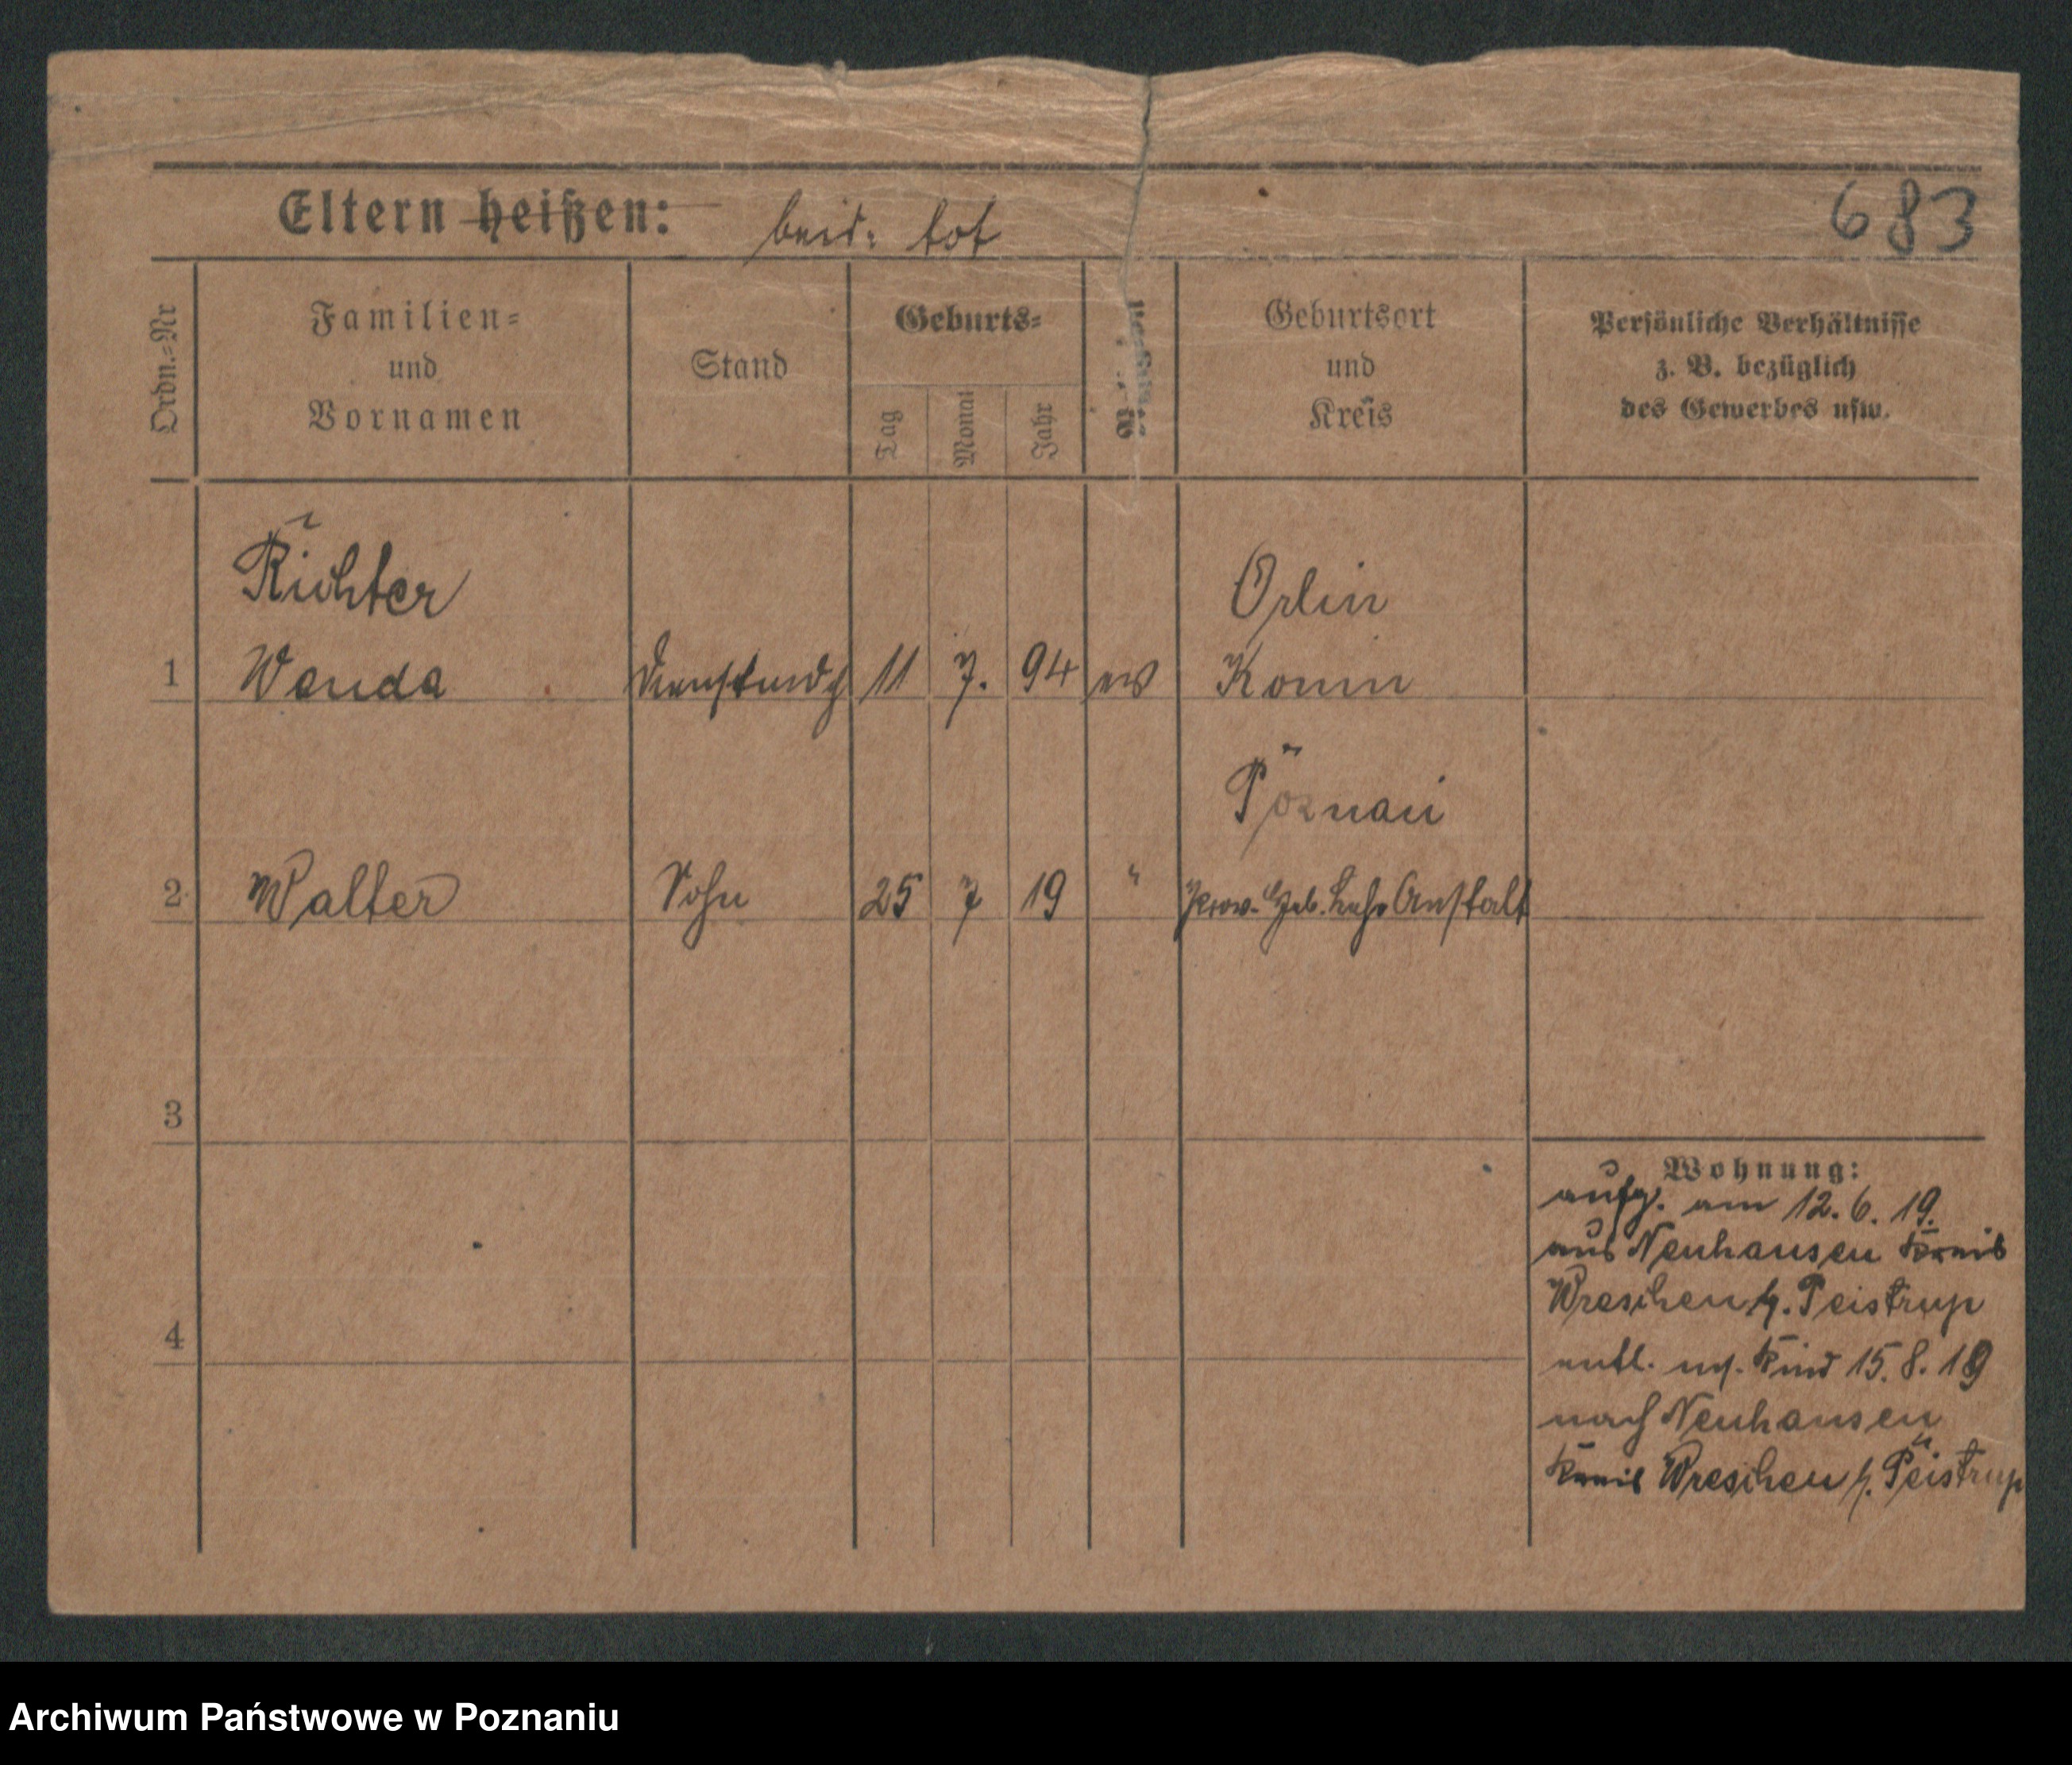 Eltern heißen: beid. tot
683
Ordn.-Nr
Familien-
und
Vornamen
Stand
Geburts-
Tag
Monat
Jahr
Geburtsort
und
Kreis
Persönliche Verhältnisse
z. B. bezüglich
des Gewerbes usw.
Richter
Orlin
1 Wanda 11 7. 94 ev Konin
Poznań
2 Walter Sohn 25 7 19 " Prov. Geb. Lehr Anstalt
3
4
Wohnung:
aufg. am 12. 6. 19.
aus Neuhausen Kreis
Wreschen b. Peistrup
entl. m. Kind 15. 8. 19
nach Neuhausen
Kreis Wreschen b. Peistrup
Archiwum Państwowe w Poznaniu